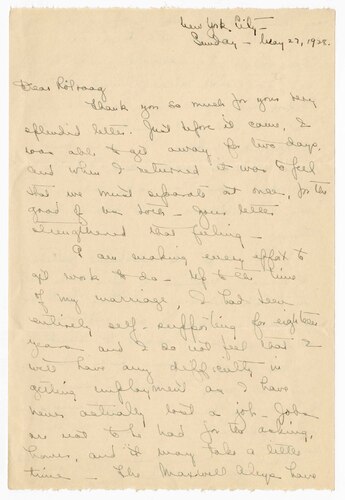 New York City -
Sunday - May 27, 1928.
Dear Rölvaag
Thank you so much for your very
splendid letter. Just before it came, I
was able to get away for two days,
and when I returned it was to feel
that we must separate at once, for the
good of us both - Your letter
strengthened that feeling -
I am making every effort to
get work to do - Up to the time
of my marriage, I had been
entirely self-supporting for eighteen
years and I do not feel that I
will have any difficulty in
getting employment as I have
never actually lost a job - Jobs
are not to be had for the asking,
however, and it may take a little
time - The Maxwell Aleys have